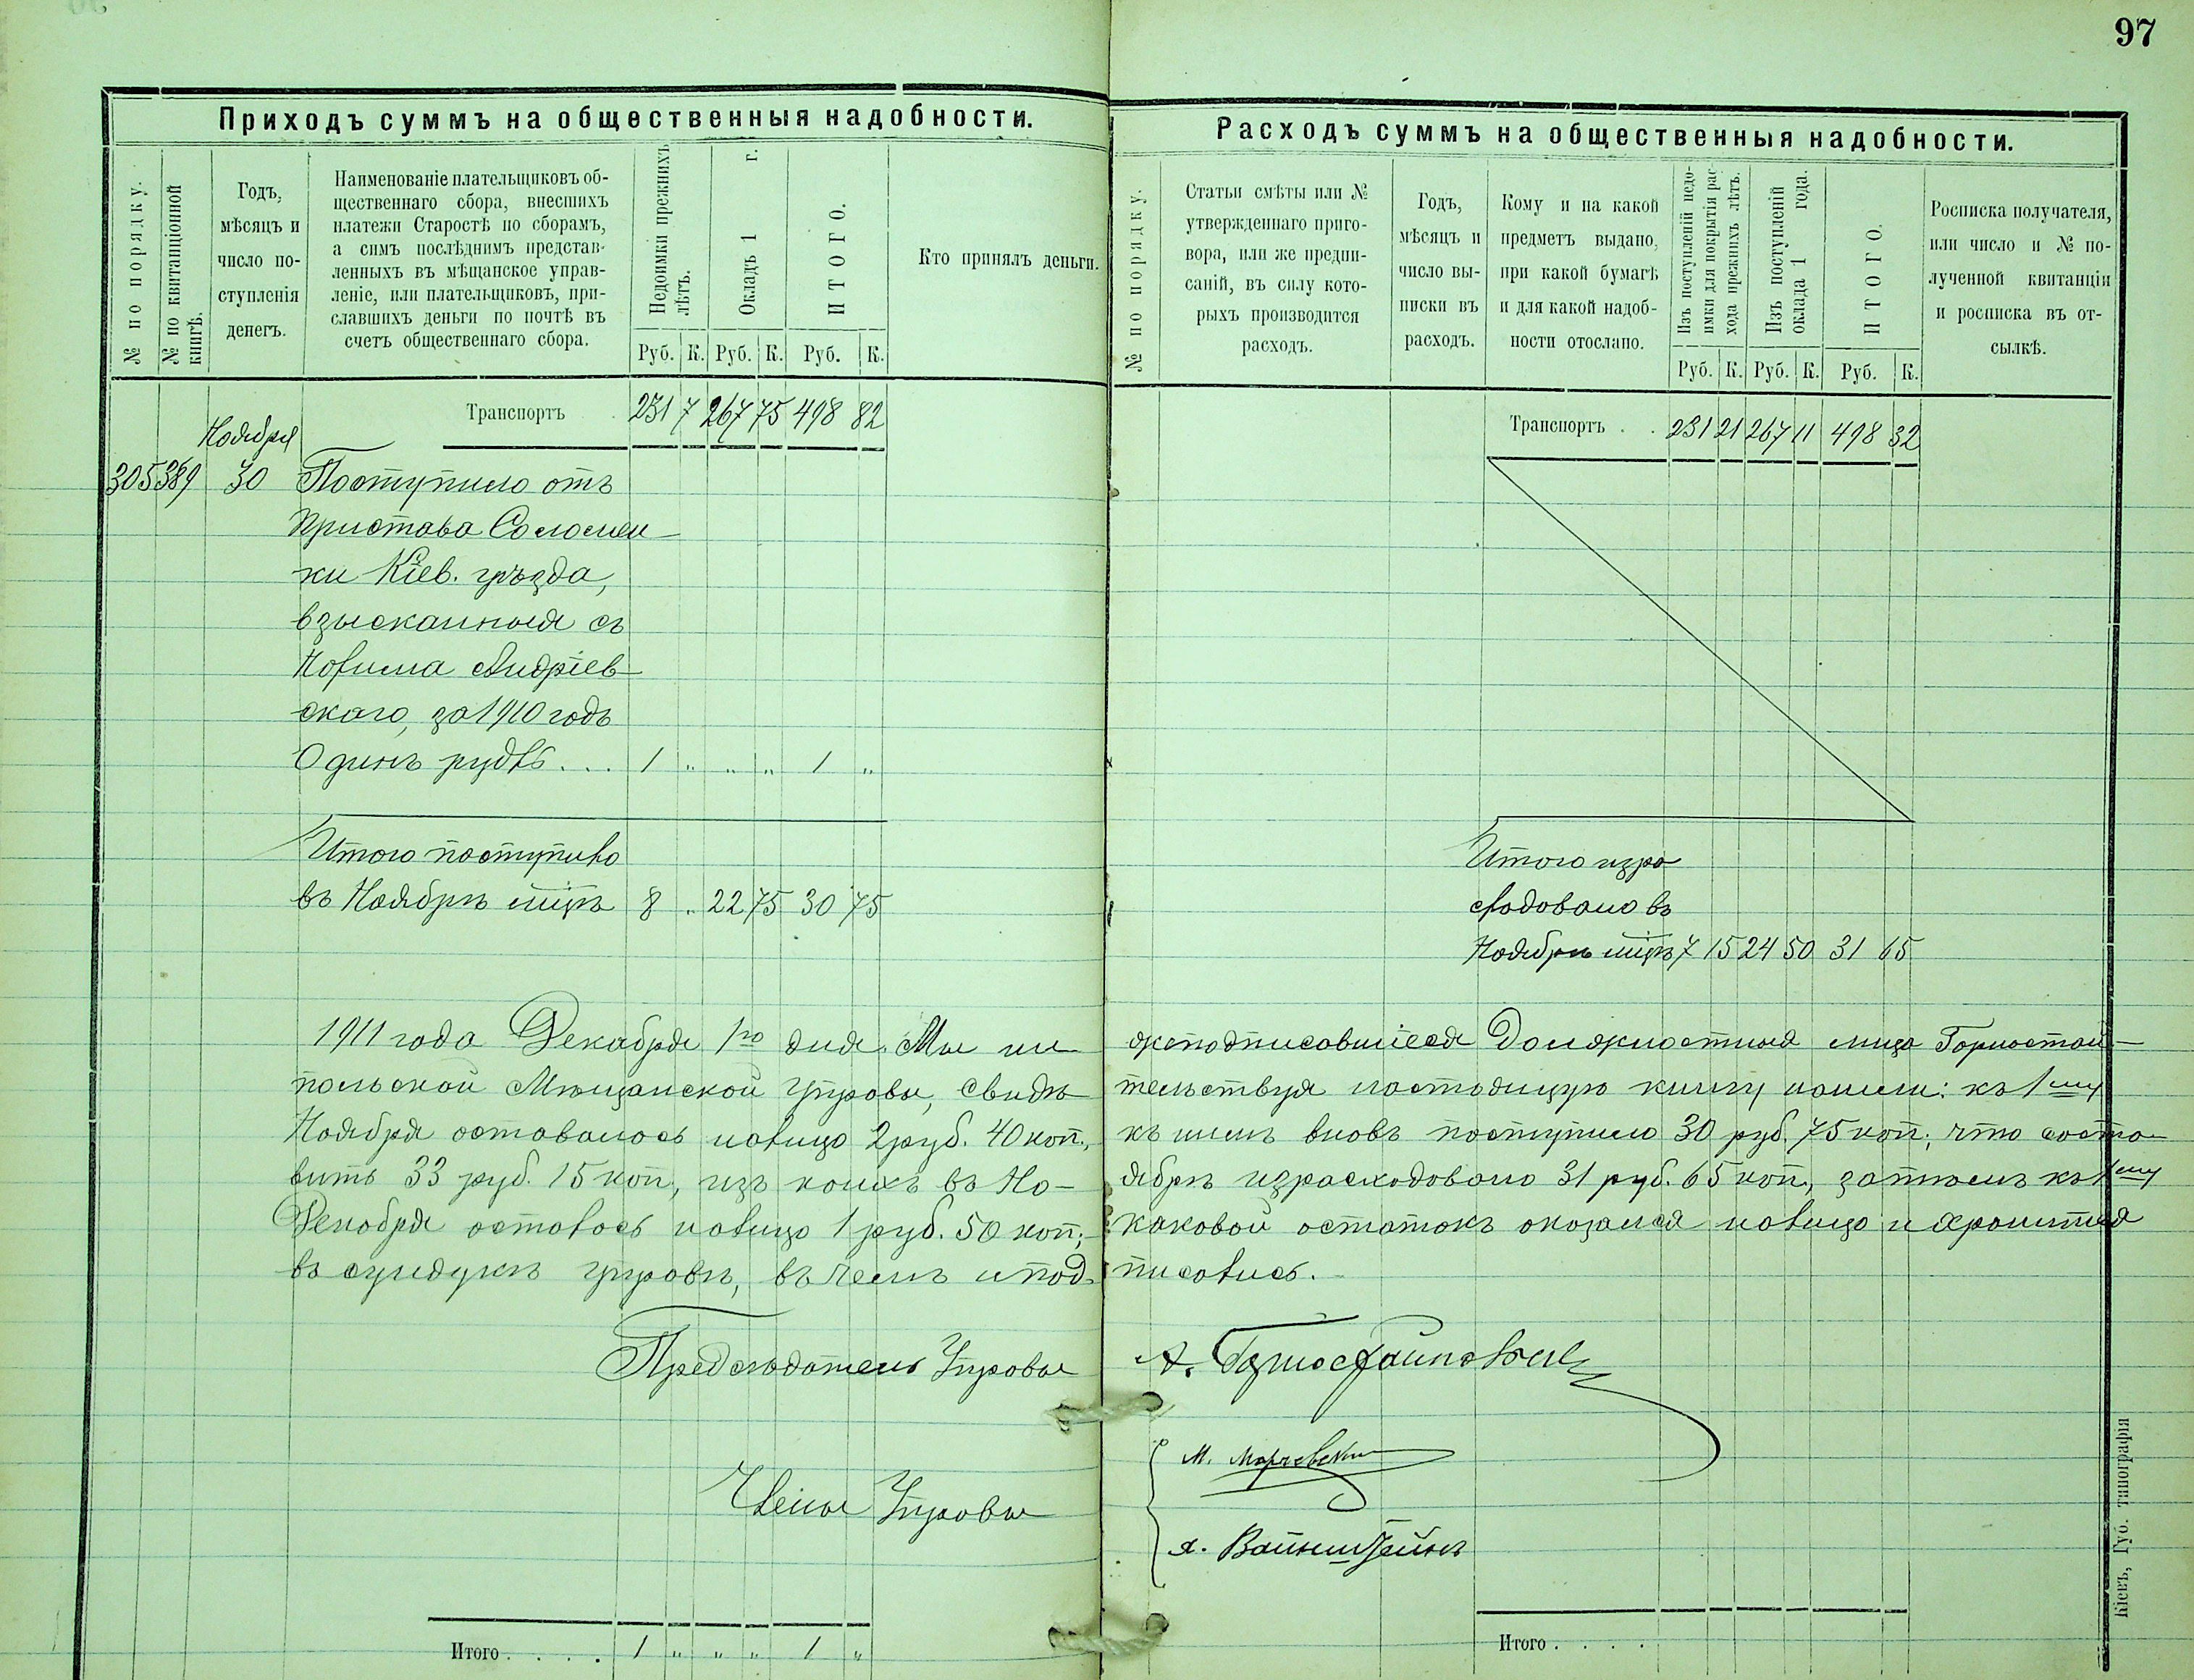 97
Приходъ суммъ на общественныя надобности.
№ по порядку.
№ по квитанціонной
книгѣ.
Годъ,
мѣсяцъ и
число по-
ступленія
денегъ.
Наименованіе плательщиковъ об-
щественнаго сбора, внесшихъ
платежи Старостѣ по сборамъ,
а симъ послѣднимъ представ-
ленныхъ въ мѣщанское управ-
леніе, или плательщиковъ, при-
славшихъ деньги по почтѣ въ
счетъ общественнаго сбора.
Недоимки прежнихъ
лѣтъ.
Окладъ 1 г.
ИТОГО.
Кто принялъ деньги.
Руб. К. Руб. К. Руб. К.
Транспортъ 231 7 267 75 498 82
Ноября
305 389 30 Поступило отъ
Пристава Соломен-
ки Кіев. уѣзда,
взысканныя съ
Андріев-
скаго, за 1910 годъ
Одинъ рубль... 1 " " " 1 "
Итого поступило
въ Ноябрѣ мцѣ 8 " 22 75 30 75
Расходъ суммъ на общественныя надобности.
№ по порядку.
Статьи смѣты или №
утвержденнаго приго-
вора, или же предпи-
саній, въ силу кото-
рыхъ производится
расходъ.
Годъ,
мѣсяцъ и
число вы-
писки въ
расходъ.
Кому и на какой
предметъ выдано,
при какой бумагѣ
и для какой надоб-
ности отослано.
Изъ поступленій недо-
имки для покрытія рас
хода прежнихъ лѣтъ.
Изъ поступленій
оклада 1 года.
ИТОГО.
Росписка получателя,
или число и № по-
лученной квитанціи
и росписка въ от-
сылкѣ.
Руб. К. Руб. К. Руб. К.
Транспортъ . . 231 21 267 11 498 32
Итого изра
сходовано въ
Ноябрѣ мцѣ 7 15 24 50 31 65
1911 года Декабря 1го дня. Мы ни жеподписавшіеся Должностныя лица Горностай-
польской Мѣщанской Управы, свидѣ тельствуя настоящую книгу нашли: къ 1му
Ноября оставалось налицо 2 руб. 40 коп., къ нимъ вновь поступило 30 руб. 75 коп; что соста-
витъ 33 руб. 15 коп, изъ коихъ въ Но- ябрѣ израсходовано 31 руб. 65 коп, затѣмъ къ 1му
Декабря осталось налицо 1 руб. 50 коп; каковой остатокъ оказался налицо и хранится
въ сундукѣ управы, въ чемъ и под- писались.
Председатель Управы А.
Члены Управы
М. Марчевскій
Я. Вайнштейнъ
Итого . . . . 1 " " " 1 "
Итого . . . .
Кіевъ, Губ. типографія